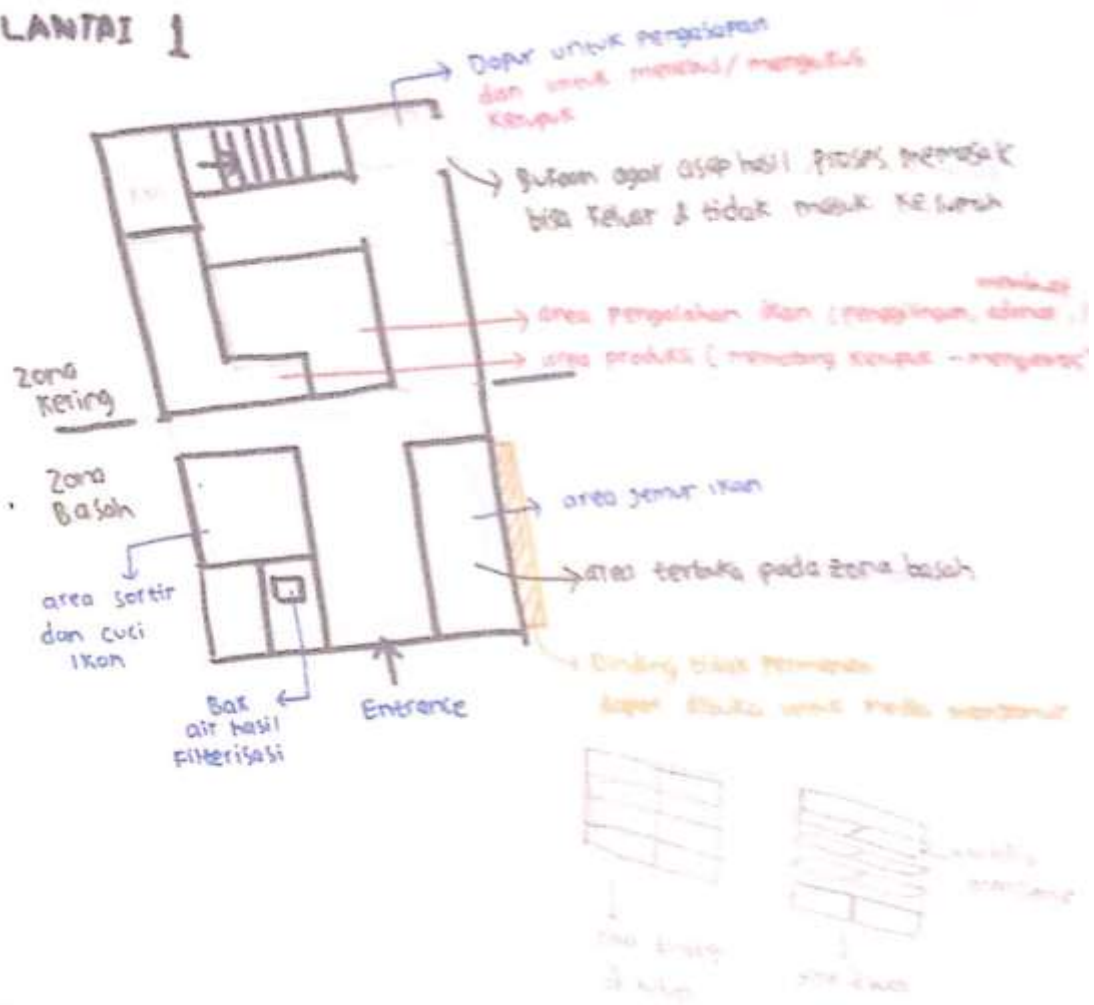 LANTAI 1
Dapur untuk pengasapan
dan untuk merebus/ mengukus
Kerupuk
Bukaan agar asap hasil proses memasak
bisa keluar & tidak masuk ke rumah
membuat
area pengolahan ikan (penggilingan, adonan,
area produksi ( memotong kerupuk -
Zona
Kering
Zona
Basah
area jemur ikan
area terbuka pada zona basah
area sortir
dan cuci
ikan
Bak
air hasil
Filterisasi
Entrance
Dinding tidak Permanen
dapat dibuka untuk media menjemur